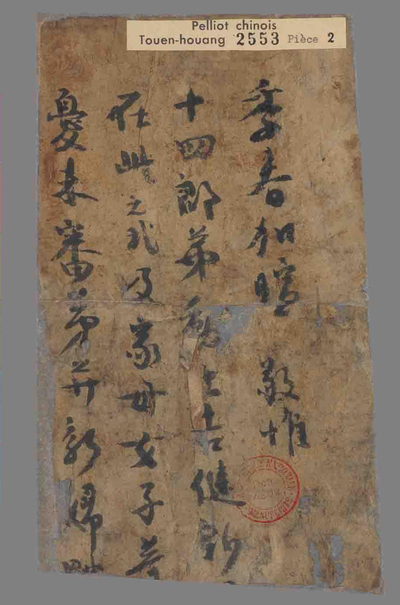 Pelliot chinois
Touen-houang 2553 Pièce 2
季春加暄 敬惟
十四郎弟動止吉健
在此之我及家母女子
憂未審弟并新婦